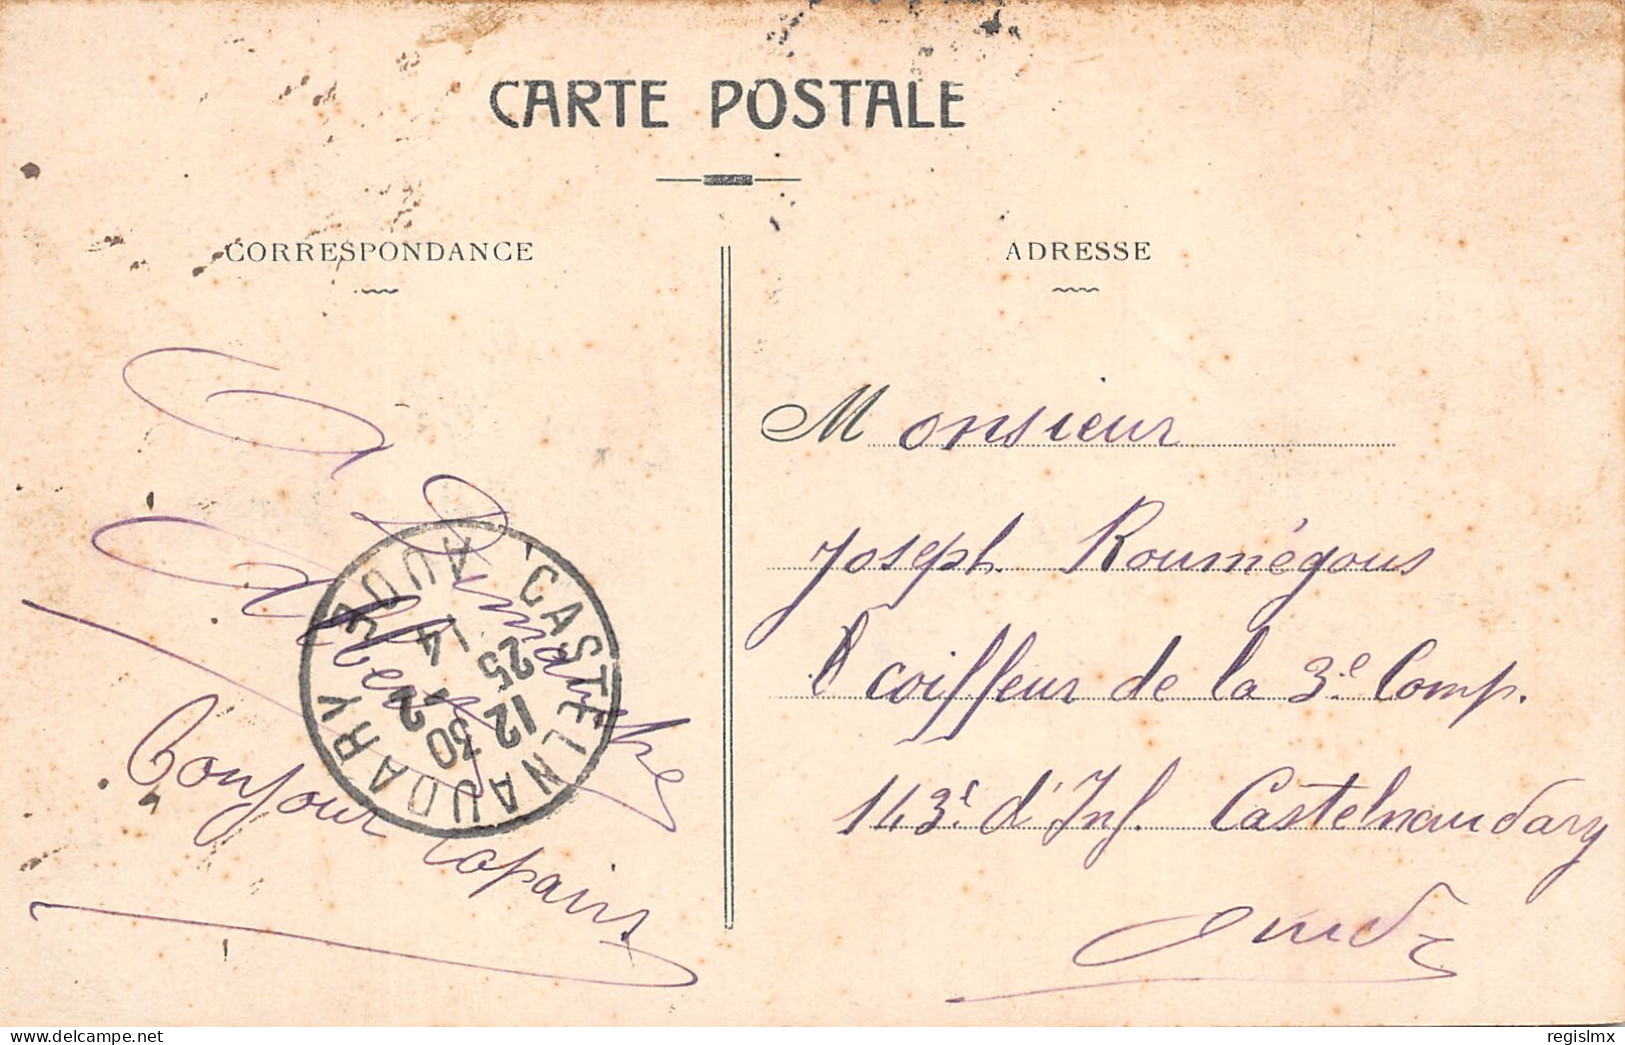 CARTE POSTALE
CORRESPONDANCE
ADRESSE
A Dimanche
Albert
Bonjour Copains
Monsieur
Joseph Roumégous
Coiffeur de la 3e Comp.
143e d'Inf. Castelnaudary
Aude
CASTELNAUDARY AUDE
12 30
25 2
14
regislmx